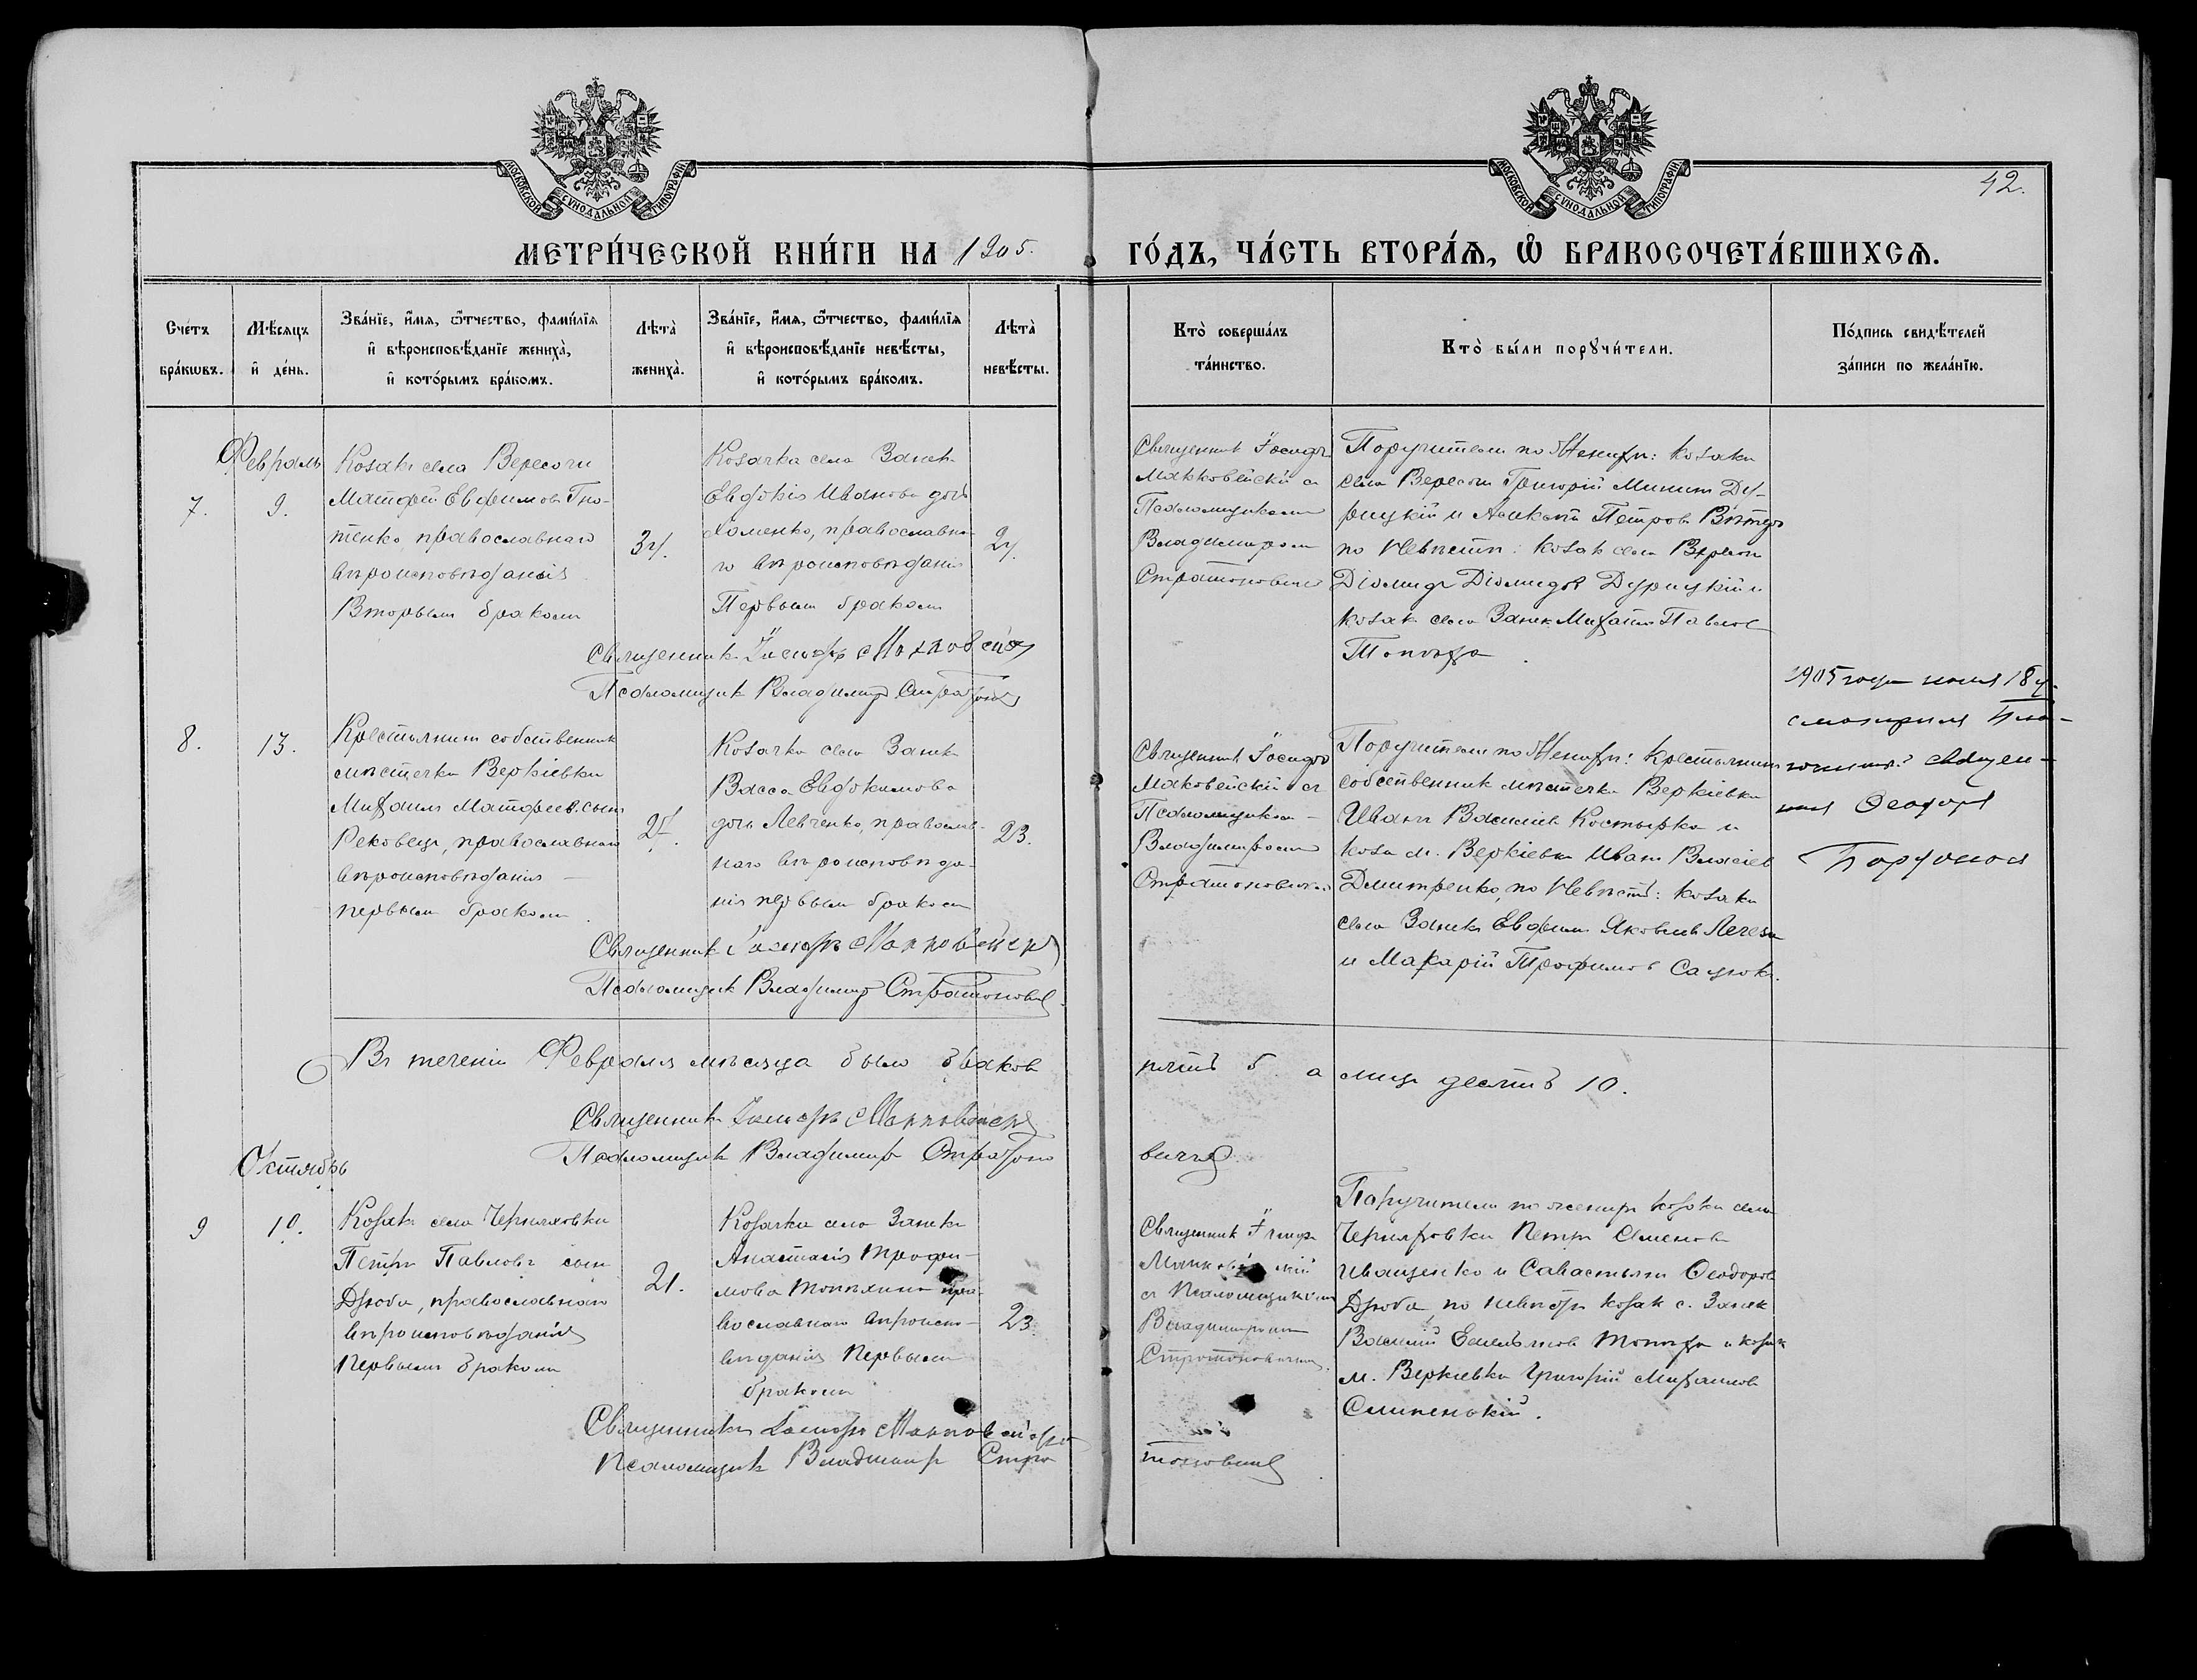 МОСКОВСКОЙ СѴНОДАЛЬНОЙ ТИПОГРАФІИ
МОСКОВСКОЙ СѴНОДАЛЬНОЙ ТИПОГРАФІИ
42.
МЕТРИ́ЧЕСКОЙ КНИ́ГИ НА 1905. ГО́ДЪ, ЧА́СТЬ ВТОРА́Ѧ, Ѽ БРАКОСОЧЕТА́ВШИХСѦ.
Сче́тъ
бра́кωвъ.
Мѣ́сяцъ
и҆ де́нь.
Зва́нїе, и҆́мя, ѻ҆́тчество, фами́лїя
и҆ вѣроисповѣ́данїе жениха̀,
и҆ кото́рымъ бра́комъ.
Лѣта̀
жениха̀.
Зва́нїе, и҆́мя, ѻ҆́тчество, фами́лїя
и҆ вѣроисповѣ́данїе невѣ́сты,
и҆ кото́рымъ бра́комъ.
Лѣта̀
невѣ́сты.
Кто̀ соверша́лъ
та́инство.
Кто̀ бы́ли порꙋчи́тели.
По́дпись свидѣ́телей
за́писи по жела́нїю.
Февраль
7.
9.
Козакъ села Вересочи
Матфей Евфимовъ Гно-
тенко, православнаго
вѣроисповѣданія
Вторымъ бракомъ
34.
Козачка села Заньк
Евдокія Иванова дочь
Хоменко, православна-
го вѣроисповѣданія
Первымъ бракомъ
24.
Священникъ Іосифъ
Маккавейскій съ
Псаломщикомъ
Владимиромъ
Стратоновичемъ
Поручители по Женихѣ: козаки
села Вересочи Григорій Мининъ Ду-
рицкій и Алексѣй Петровъ
по Невѣстѣ: козакъ села Вересочи
Діомидъ Діомидовъ Дурицкій и
козакъ села Заньк Михаилъ Павловъ
Топѣха
Священникъ Іосифъ Маккавейскій
Псаломщикъ Владимиръ Стратоновичъ
8.
13.
Крестьянинъ собственникъ
мѣстечка Веркіевки
Михаилъ Матфеевъ сынъ
Рековецъ, православнаго
вѣроисповѣданія –
первымъ бракомъ.
Козачка села Заньк
Васса Евдокимова
дочь Левченко, православ-
наго вѣроисповѣда-
нія первымъ бракомъ
23.
Священникъ Іосифъ
Маковейскій съ
Псаломщикомъ –
Владимиромъ
Стратоновичемъ
Поручители по Женихѣ: Крестьянинъ
собственникъ мѣстечка Веркіевки
Иванъ Василіевъ Костырка и
коза м. Веркіевки Иванъ Власіевъ
Дмитренко, по Невѣстѣ: козаки
села Заньк Евфимъ Яковлевъ
и Макарій Трофимовъ Сацюкъ.
1905 года июня 18 д.
смотрѣлъ Бла-
гочинный Священ-
никъ Ѳеодоръ
Священникъ Іосифъ Маккавейскій
Псаломщикъ Владимиръ Стратоновичъ
Въ теченіи Февраля мѣсяца было браковъ пять 5 а лицъ десять 10.
Священникъ Іосифъ Маккавейскій
Псаломщикъ Владимиръ Стратоно вичъ
Октябрь
9
10.
Козакъ села Черняховки
Петръ Павловъ сынъ
Дзюба, православнаго
вѣроисповѣданія
Первымъ бракомъ
21.
Козачка села Заньки
Анастасія Трофи-
мова Топѣхина пра-
вославнаго вѣроиспо-
вѣданія Первымъ
бракомъ
23.
Священникъ Іосифъ
съ Псаломщикомъ
Владимиромъ
Стратоновичемъ.
Поручители по женихѣ козаки села
Черняховки Петръ Семеновъ
Иващенко и Савастьянъ Ѳеодоровъ
Дзюба, по невѣстѣ козакъ с. Заньк
Василій Емельяновъ Топѣха и козакъ
м. Веркіевки Григорій Михайловъ
Слипенькій.
Священникъ Іосифъ Маккавейскій
Псаломщикъ Владимиръ Стра тоновичъ